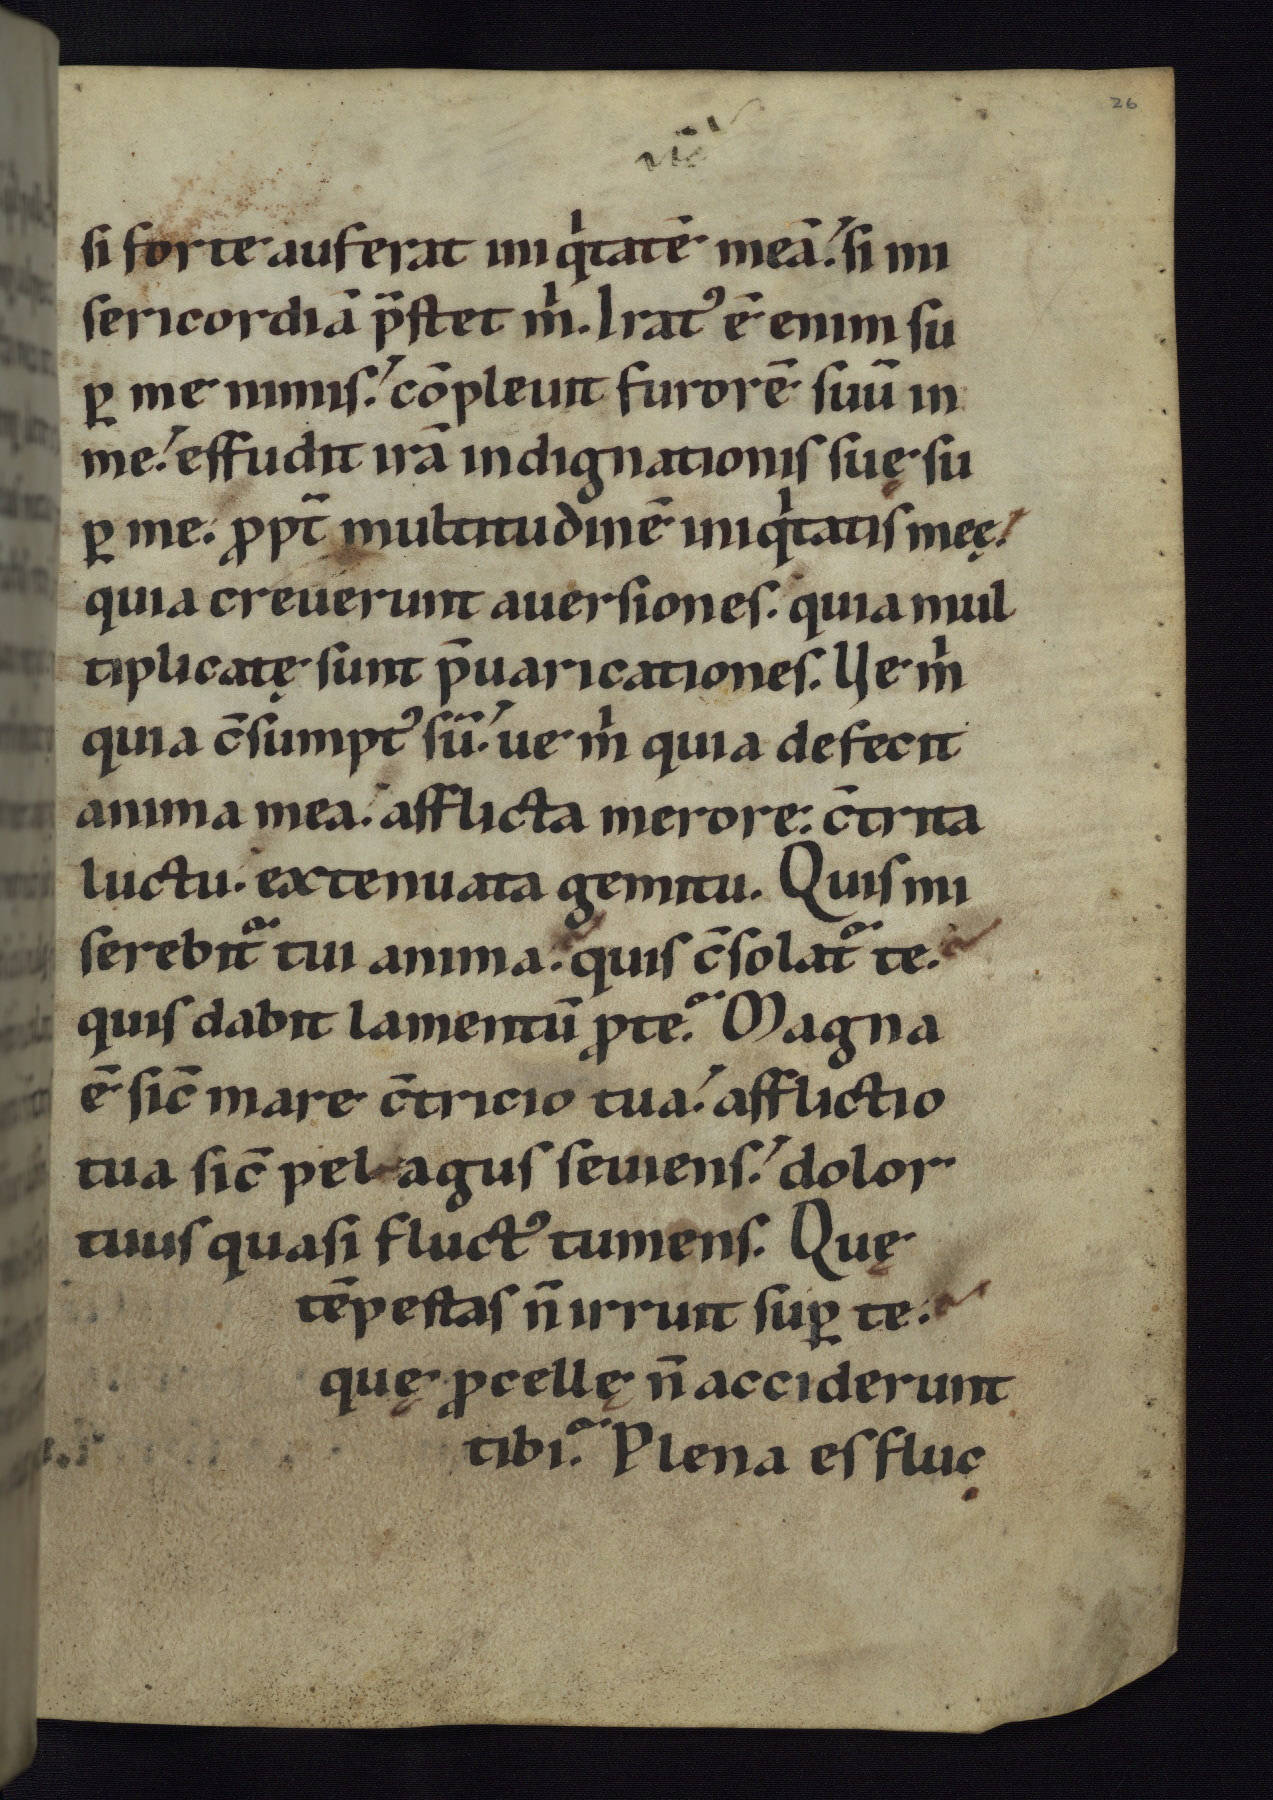 26
si forte auferat iniq̍tatē meā. si mi
sericordiā p̄stet m̍. Irat᾽ ē enim su
ꝑ me nimis. cōpleuit furorē suū in
me. effudit irā indignationis suę su
ꝑ me. ꝓpt̄ multitudinē iniq̍tatis meę.
quia creuerunt auersiones. quia mul
tiplicatę sunt p̄uaricationes. Ve m̍
quia c̄sumpt᾽ sū. ue m̍ quia defecit
anima mea. afflicta merore. c̄trita
luctu. extenuata gemitu. Quis mi
serebit᷑ tui anima. quis c̄solat᷑ te.
quis dabit lamentū ꝓ te. Magna
ē sic̄ mare c̄tricio tua. afflictio
tua sic̄ pelagus seuiens. dolor
tuus quasi fluct᾽ tumens. Quę
tēpestas n̄ irruit suꝑ te.
quę ꝓcellę n̄ acciderunt
tibi. Plena es fluc